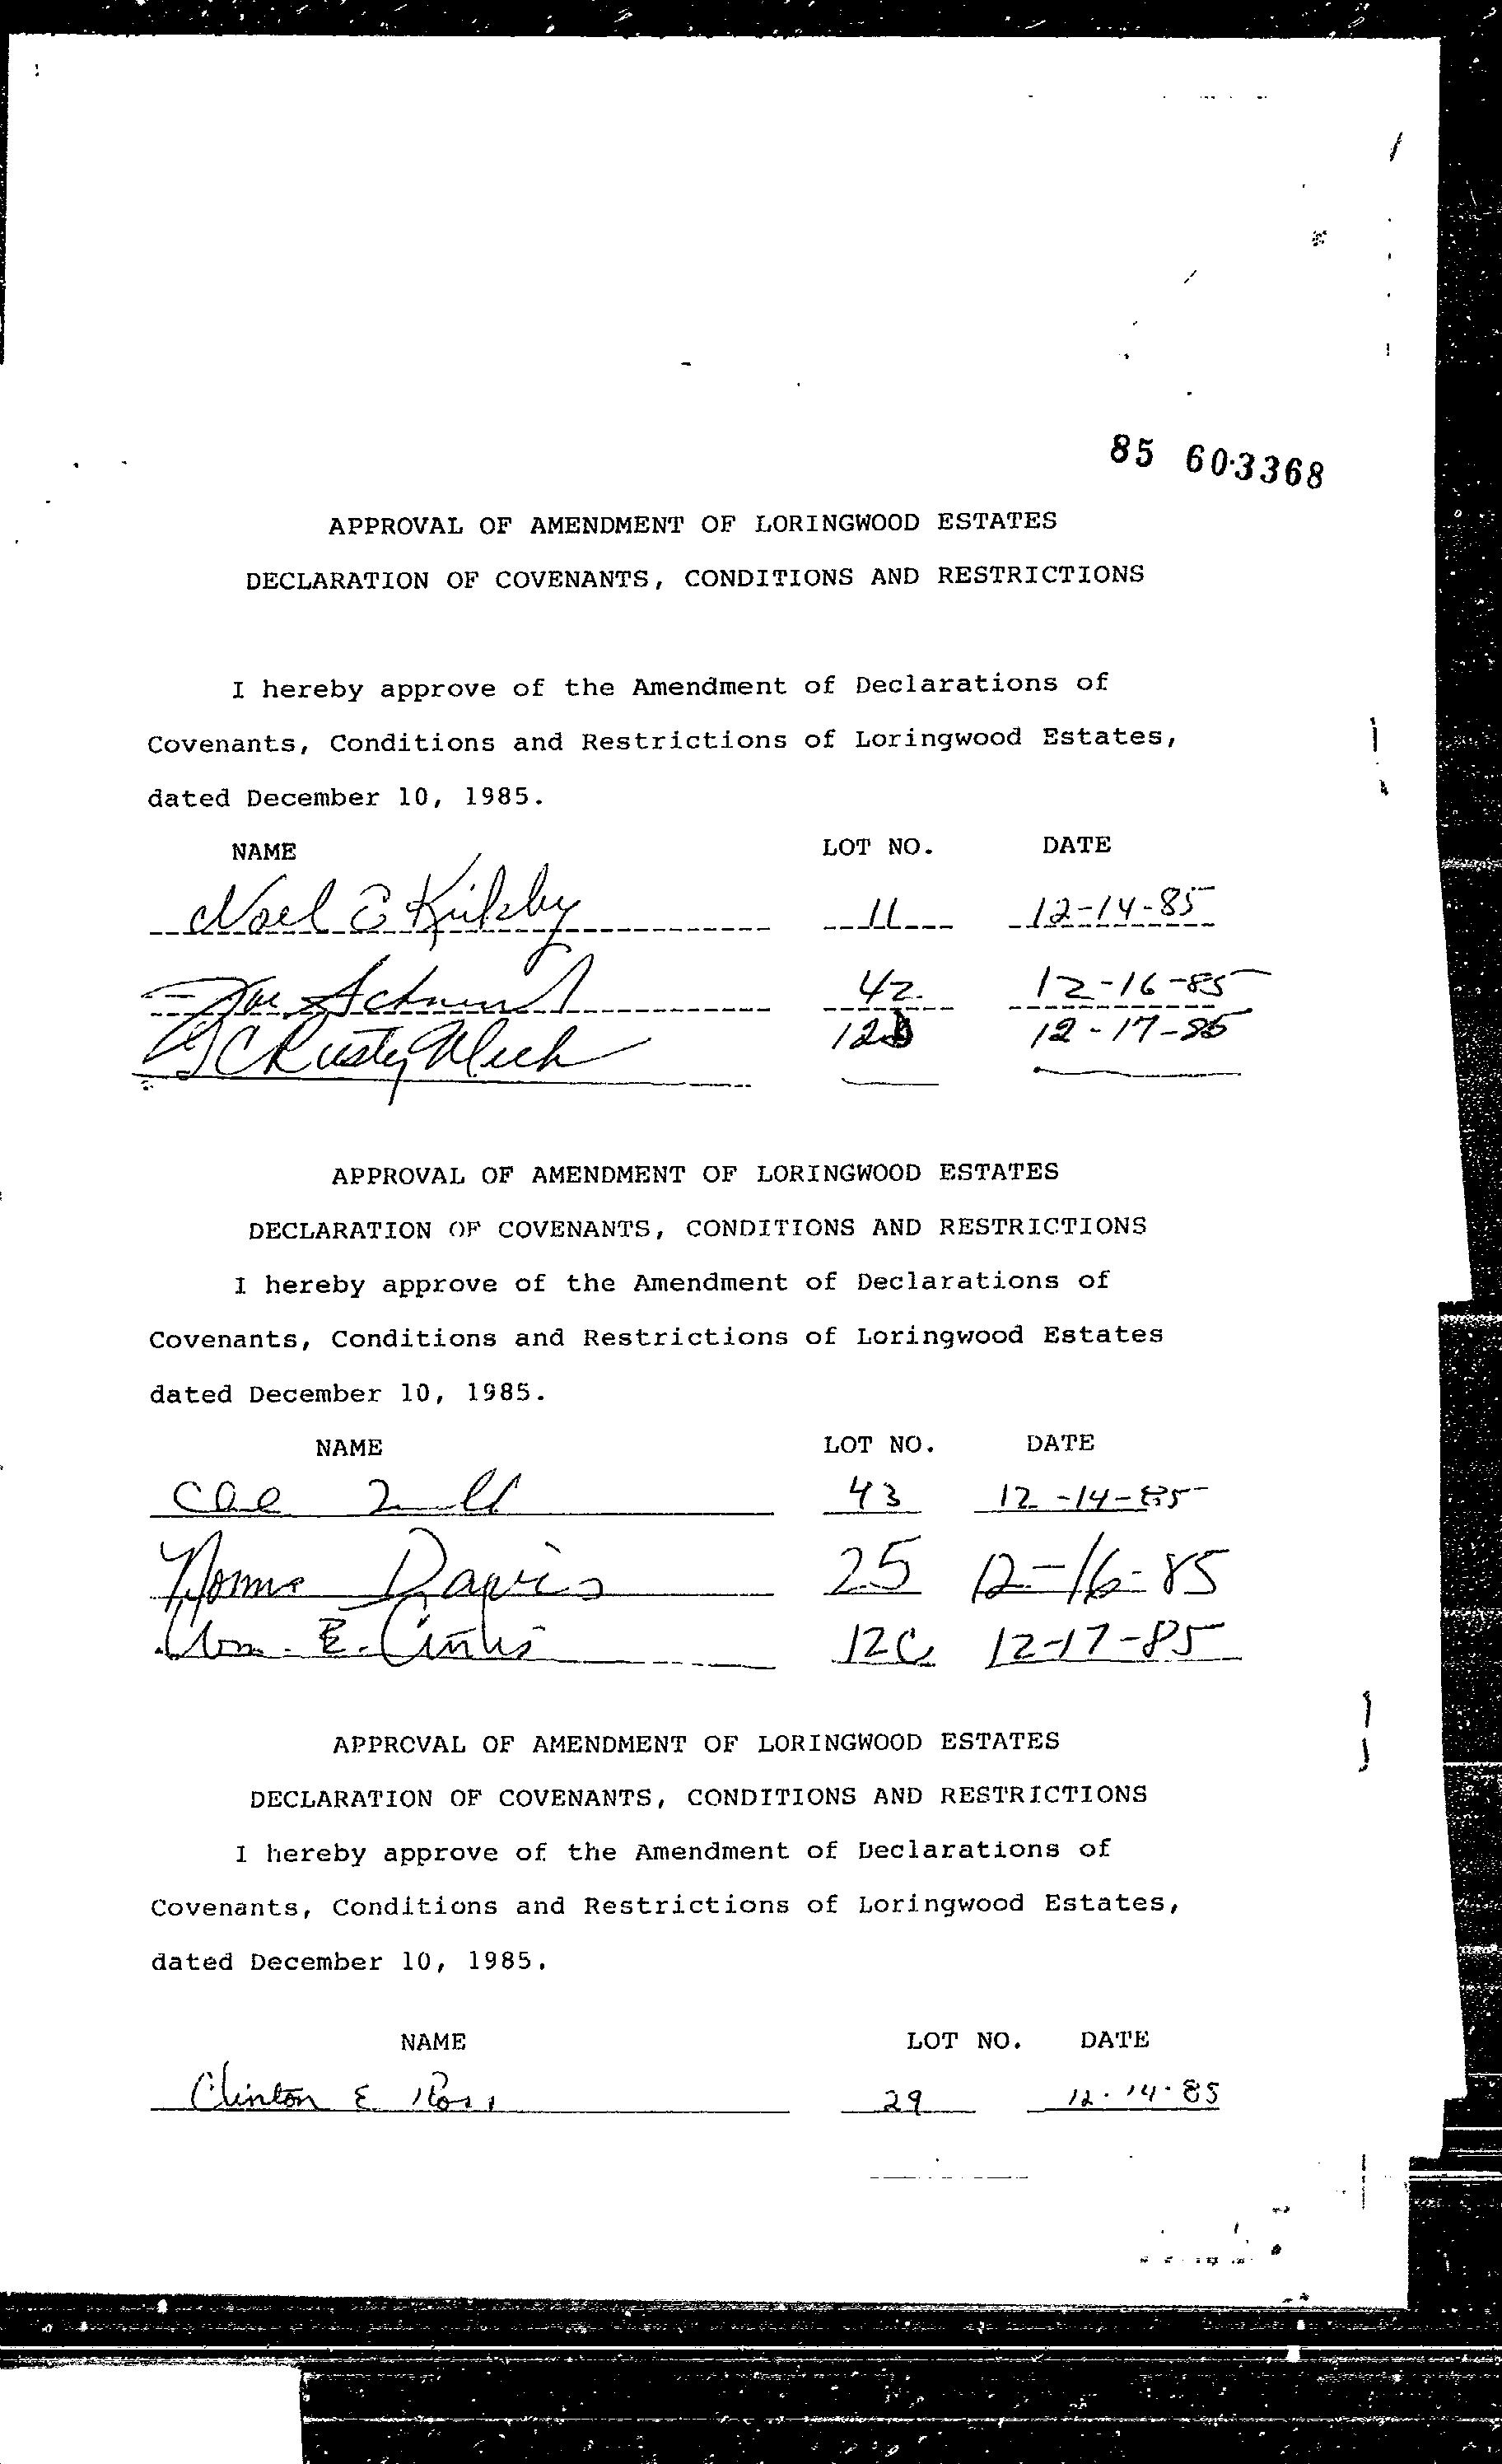 85 603368
APPROVAL OF AMENDMENT OF LORINGWOOD ESTATES
DECLARATION OF COVENANTS, CONDITIONS AND RESTRICTIONS
I hereby approve of the Amendment of Declarations of
Covenants, Conditions and Restrictions of Loringwood Estates,
dated December 10, 1985.
NAME LOT NO. DATE
Noel 11 12-14-85
42 12-16-85
Rusty 12-17-85
APPROVAL OF AMENDMENT OF LORINGWOOD ESTATES
DECLARATION OF COVENANTS, CONDITIONS AND RESTRICTIONS
I hereby approve of the Amendment of Declarations of
Covenants, Conditions and Restrictions of Loringwood Estates
dated December 10, 1985.
NAME LOT NO. DATE
43 12-14-85
Norma Davis 25 12-16-85
Wm. E. Curtis 12C 12-17-85
APPROVAL OF AMENDMENT OF LORINGWOOD ESTATES
DECLARATION OF COVENANTS, CONDITIONS AND RESTRICTIONS
I hereby approve of the Amendment of Declarations of
Covenants, Conditions and Restrictions of Loringwood Estates,
dated December 10, 1985.
NAME LOT NO. DATE
Clinton E Ross 29 12.14.85